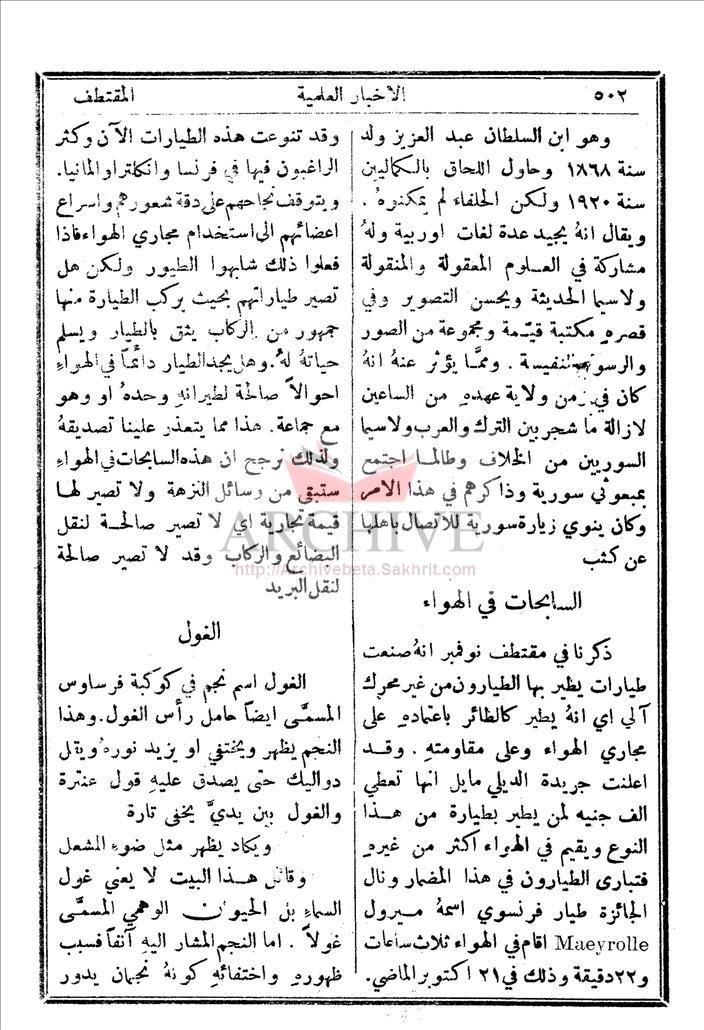 ٥٠٢
الاخبار العلمية
المقتطف
وهو ابن السلطان عبد العزيز ولد
سنة ١٨٦٨ وحاول اللحاق بالكماليين
سنة ١٩٢٠ ولكن الحلفاء لم يمكنوهُ .
ويقال انهُ يجيد عدة لغات اوربية ولهُ
مشاركة في العلوم المعقولة والمنقولة
ولاسيما الحديثة ويحسن التصوير وفي
قصرهِ مكتبة قيّمة ومجموعة من الصور
والرسوم النفيسة . وممَّا يؤثر عنهُ انهُ
كان في زمن ولاية عهدهِ من الساعين
لازالة ما شجر بين الترك والعرب ولاسيما
السوريين من الخلاف وطالما اجتمع
بمبعوثي سورية وذاكرهم في هذا الامر
وكان ينوي زيارة سورية للاتصال باهلها
عن كثب
السابحات في الهواء
ذكرنا في مقتطف نوفمبر انهُ صنعت
طيارات يطير بها الطيارون من غير محرك
آلي اي انهُ يطير كالطائر باعتمادهِ على
مجاري الهواء وعلى مقاومتهِ . وقد
اعلنت جريدة الديلي مايل انها تعطي
الف جنيه لمن يطير بطيارة من هذا
النوع ويقيم في الهواء اكثر من غيرهِ
فتبارى الطيارون في هذا المضمار ونال
الجائزة طيار فرنسوي اسمهُ ميرول
Maeyrolle اقام في الهواء ثلاث ساعات
و٢٢ دقيقة وذلك في ٢١ اكتوبر الماضي.
وقد تنوعت هذه الطيارات الآن وكثر
الراغبون فيها في فرنسا وانكلترا والمانيا.
ويتوقف نجاحهم على دقة شعورهم واسراع
اعضائهم الى استخدام مجاري الهواء فاذا
فعلوا ذلك شابهوا الطيور ولكن هل
تصير طياراتهم بحيث يركب الطيارة منها
جمهور من الركاب يثق بالطيار ويسلم
حياتهُ لهُ. وهل يجد الطيار دائماً في الهواءِ
احوالاً صالحة لطيرانهِ وحدهُ او وهو
مع جماعة. هذا مما يتعذر علينا تصديقهُ
ولذلك نرجح ان هذه السابحات في الهواءِ
ستبقى من وسائل النزهة ولا تصير لها
قيمة تجارية اي لا تصير صالحة لنقل
البضائع والركاب وقد لا تصير صالحة
لنقل البريد
الغول
الغول اسم نجم في كوكبة فرساوس
المسمَّى ايضاً حامل رأس الغول. وهذا
النجم يظهر ويختفي او يزيد نورهُ ويقل
دواليك حتى يصدق عليهِ قول عنترة
والغول بين يديَّ يخفى تارة
ويكاد يظهر مثل ضوءِ المشعل
وقائل هذا البيت لا يعني غول
السماءِ بل الحيوان الوهمي المسمَّى
غولاً . اما النجم المشار اليهِ آنفاً فسبب
ظهورهِ واختفائهِ كونهُ نجمان يدور
ARCHIVE
http://Archivebeta.Sakhrit.com